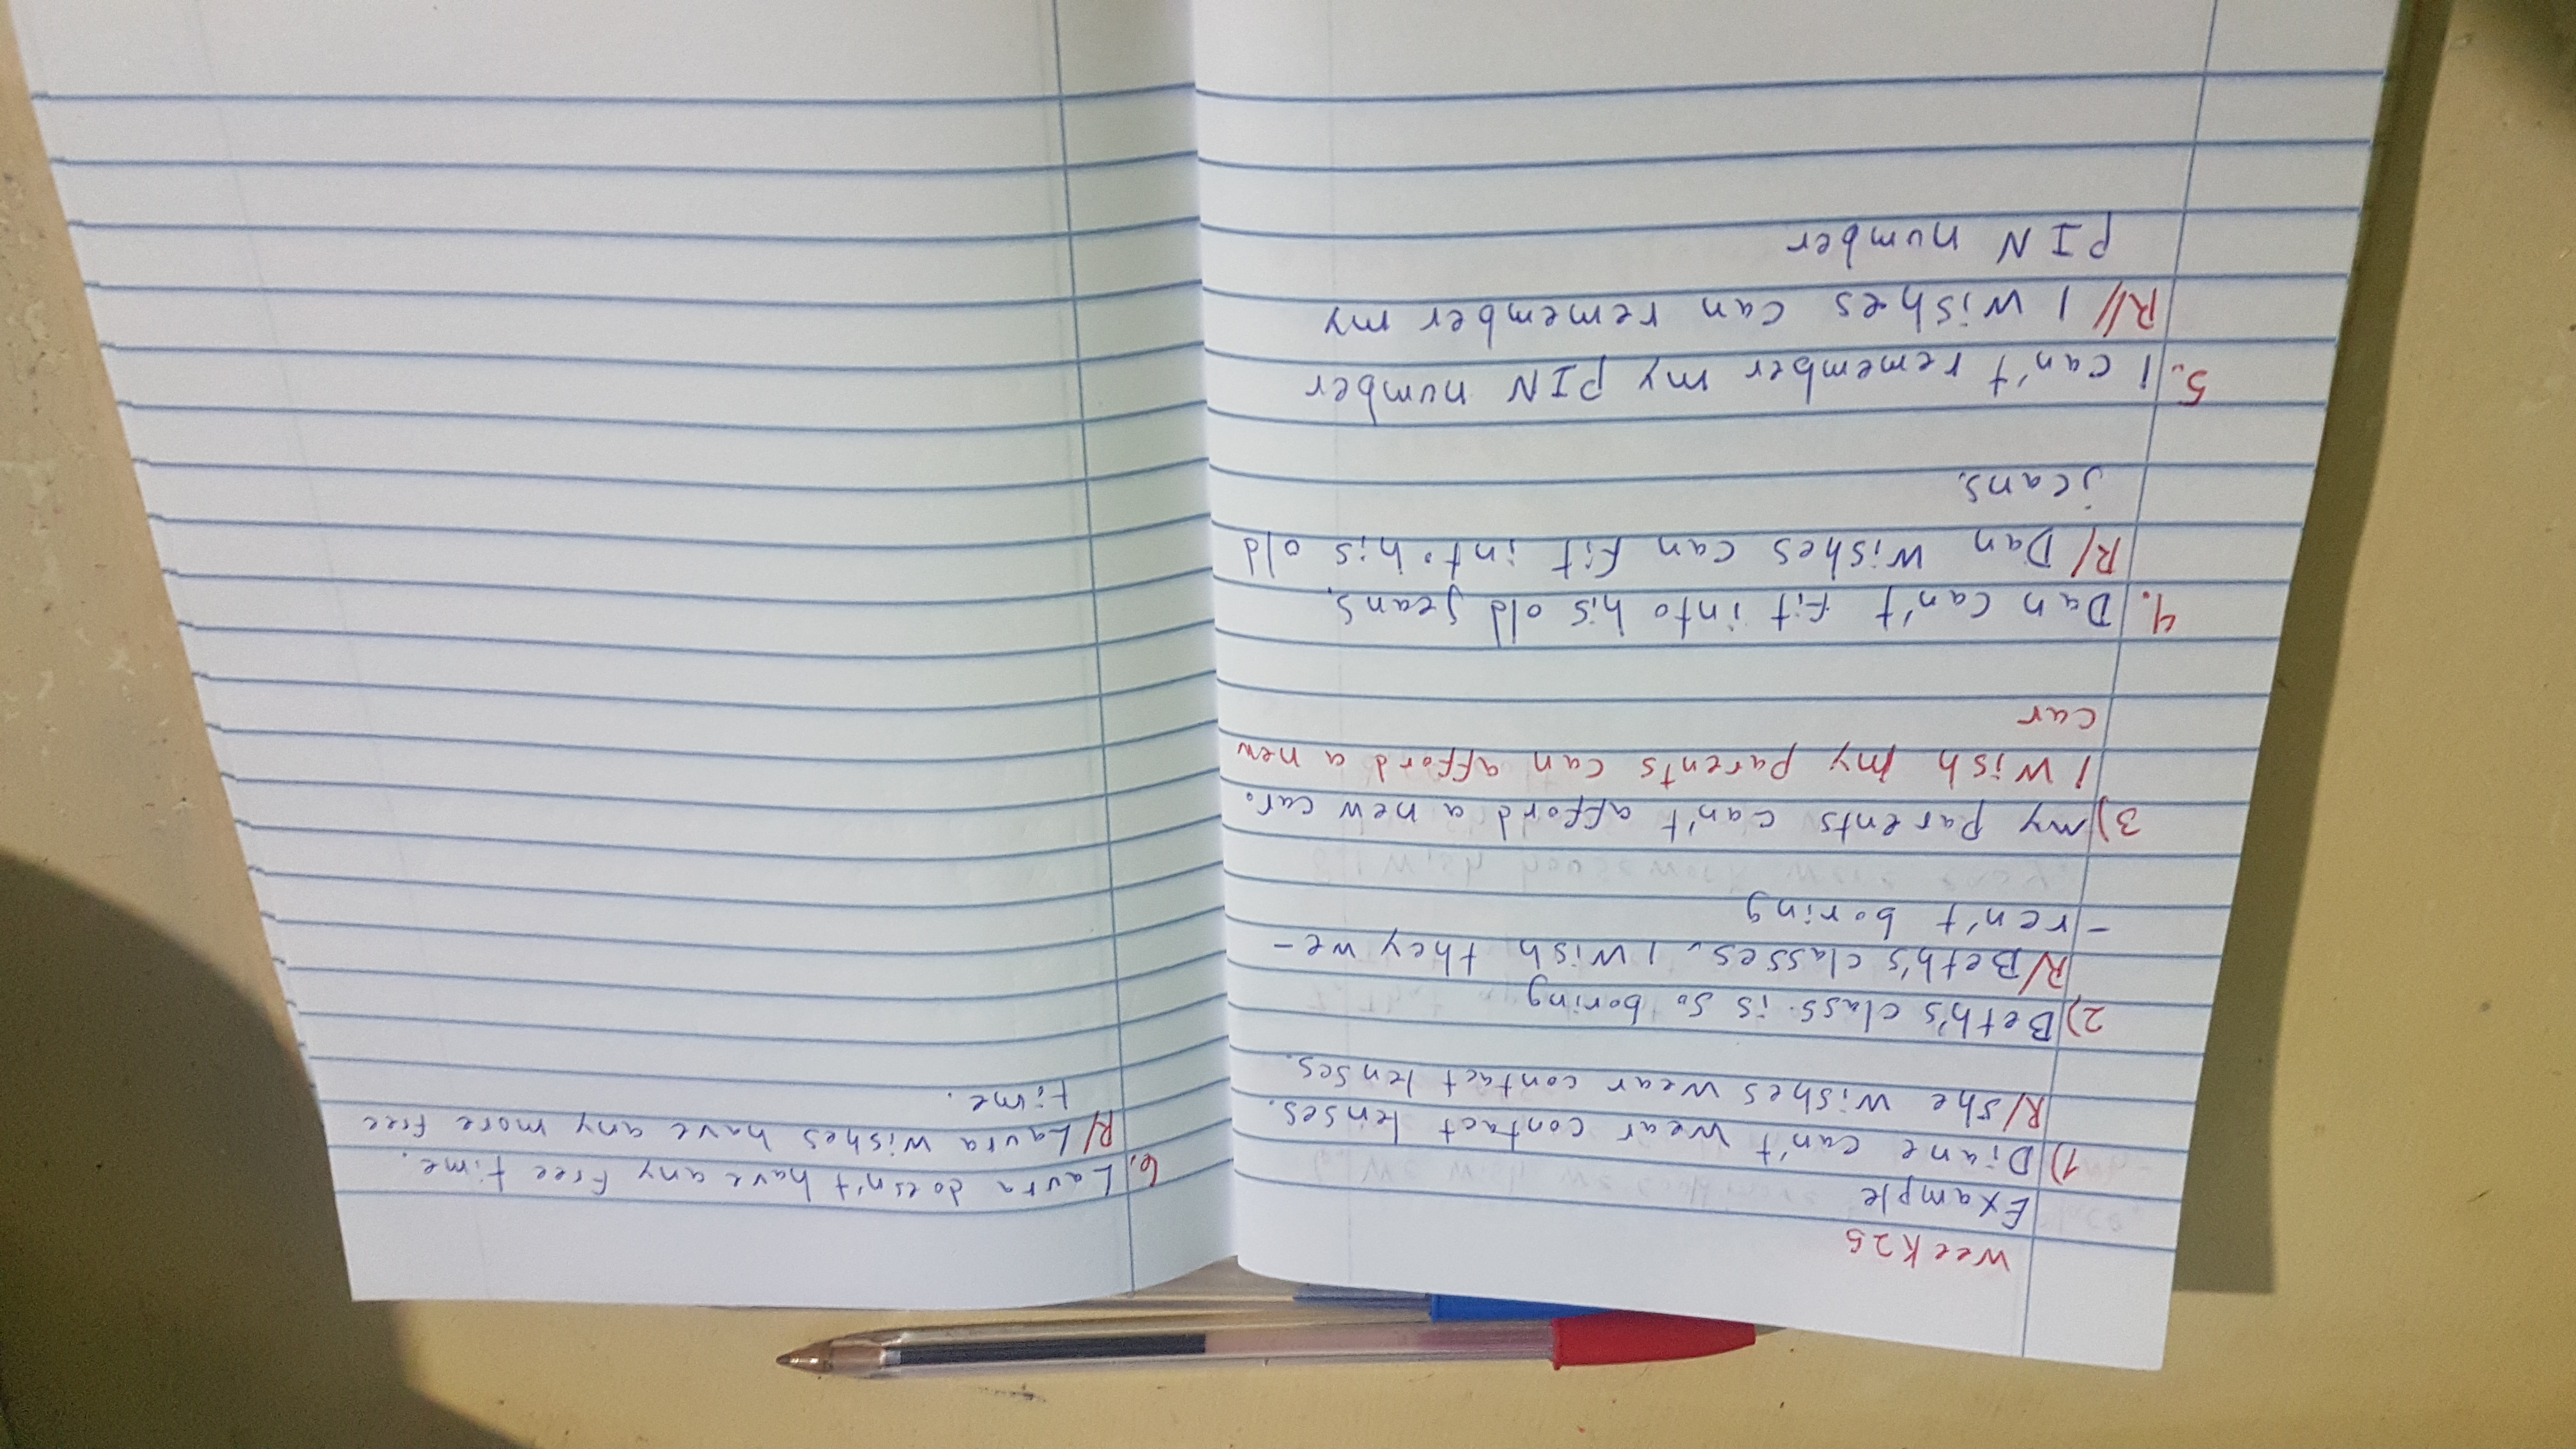 Week 25
Example
1) Diane can't wear contact lenses.
R/ she wishes wear contact lenses.
2) Beth's class is so boring
R/ Beth's classes. I wish they we-
-ren't boring
3) my parents can't afford a new car.
I wish my parents can afford a new
car
4. Dan can't fit into his old jeans.
R/ Dan wishes can fit into his old
jeans.
5. I can't remember my PIN number
R// I wishes can remember my
PIN number
6. Laura doesn't have any free time.
R/ Laura wishes have any more free
time.